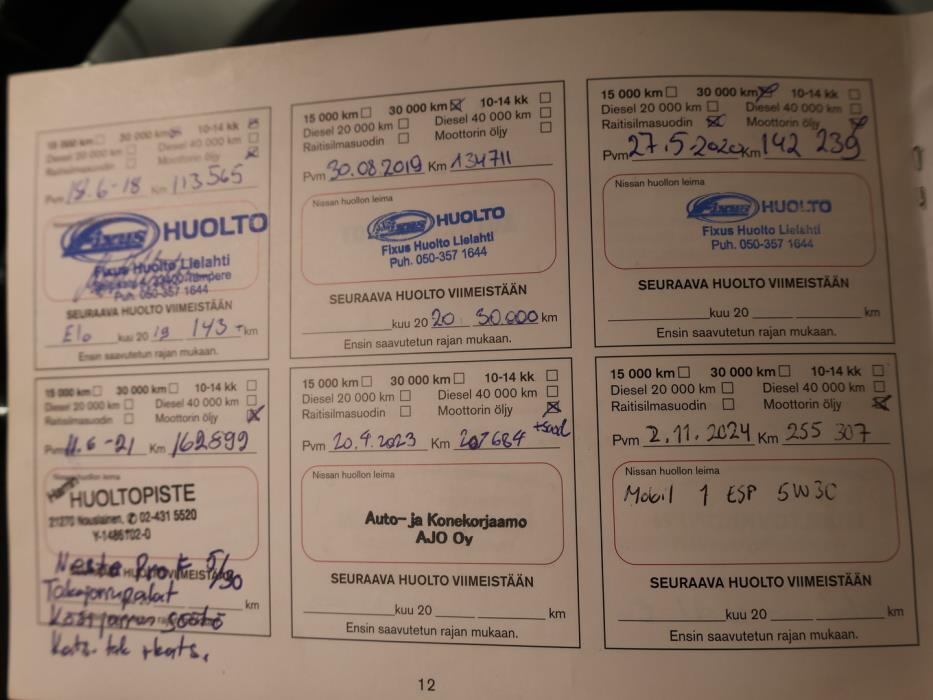 15 000 km 30 000 km 10-14 kk
Diesel 20 000 km Diesel 40 000 km
Raitisilmasuodin Moottorin öljy
Pvm 18.6-18 Km 113565
Fixus HUOLTO
Fixus Huolto Lielahti
33400 Tampere
Puh. 050-357 1644
SEURAAVA HUOLTO VIIMEISTÄÄN
Elo kuu 20 19 143 km
Ensin saavutetun rajan mukaan.
15 000 km 30 000 km 10-14 kk
Diesel 20 000 km Diesel 40 000 km
Raitisilmasuodin Moottorin öljy
Pvm 30.08.2019 Km 134711
Nissan huollon leima
Fixus HUOLTO
Fixus Huolto Lielahti
Puh. 050-357 1644
SEURAAVA HUOLTO VIIMEISTÄÄN
kuu 20 20 30.000 km
Ensin saavutetun rajan mukaan.
15 000 km 30 000 km 10-14 kk
Diesel 20 000 km Diesel 40 000 km
Raitisilmasuodin Moottorin öljy
Pvm 27.5.2020 Km 142 239
Nissan huollon leima
Fixus HUOLTO
Fixus Huolto Lielahti
Puh. 050-357 1644
SEURAAVA HUOLTO VIIMEISTÄÄN
kuu 20 km
Ensin saavutetun rajan mukaan.
15 000 km 30 000 km 10-14 kk
Diesel 20 000 km Diesel 40 000 km
Raitisilmasuodin Moottorin öljy
Pvm 11.6-21 Km 162899
Nissan huollon leima
HUOLTOPISTE
21270 Nousiainen, ✆ 02-431 5520
Y-1486102-0
Neste Pro 5/30
HUOLTO VIIMEISTÄÄN
Takajarrupalat
km
Käsijarrun säätö
Kats. tark
15 000 km 30 000 km 10-14 kk
Diesel 20 000 km Diesel 40 000 km
Raitisilmasuodin Moottorin öljy
+suod
Pvm 20.4.2023 Km 207684
Nissan huollon leima
Auto- ja Konekorjaamo
AJO Oy
SEURAAVA HUOLTO VIIMEISTÄÄN
kuu 20 km
Ensin saavutetun rajan mukaan.
15 000 km 30 000 km 10-14 kk
Diesel 20 000 km Diesel 40 000 km
Raitisilmasuodin Moottorin öljy
Pvm 2.11.2024 Km 255 307
Nissan huollon leima
Mobil 1 ESP 5W30
SEURAAVA HUOLTO VIIMEISTÄÄN
kuu 20 km
Ensin saavutetun rajan mukaan.
12